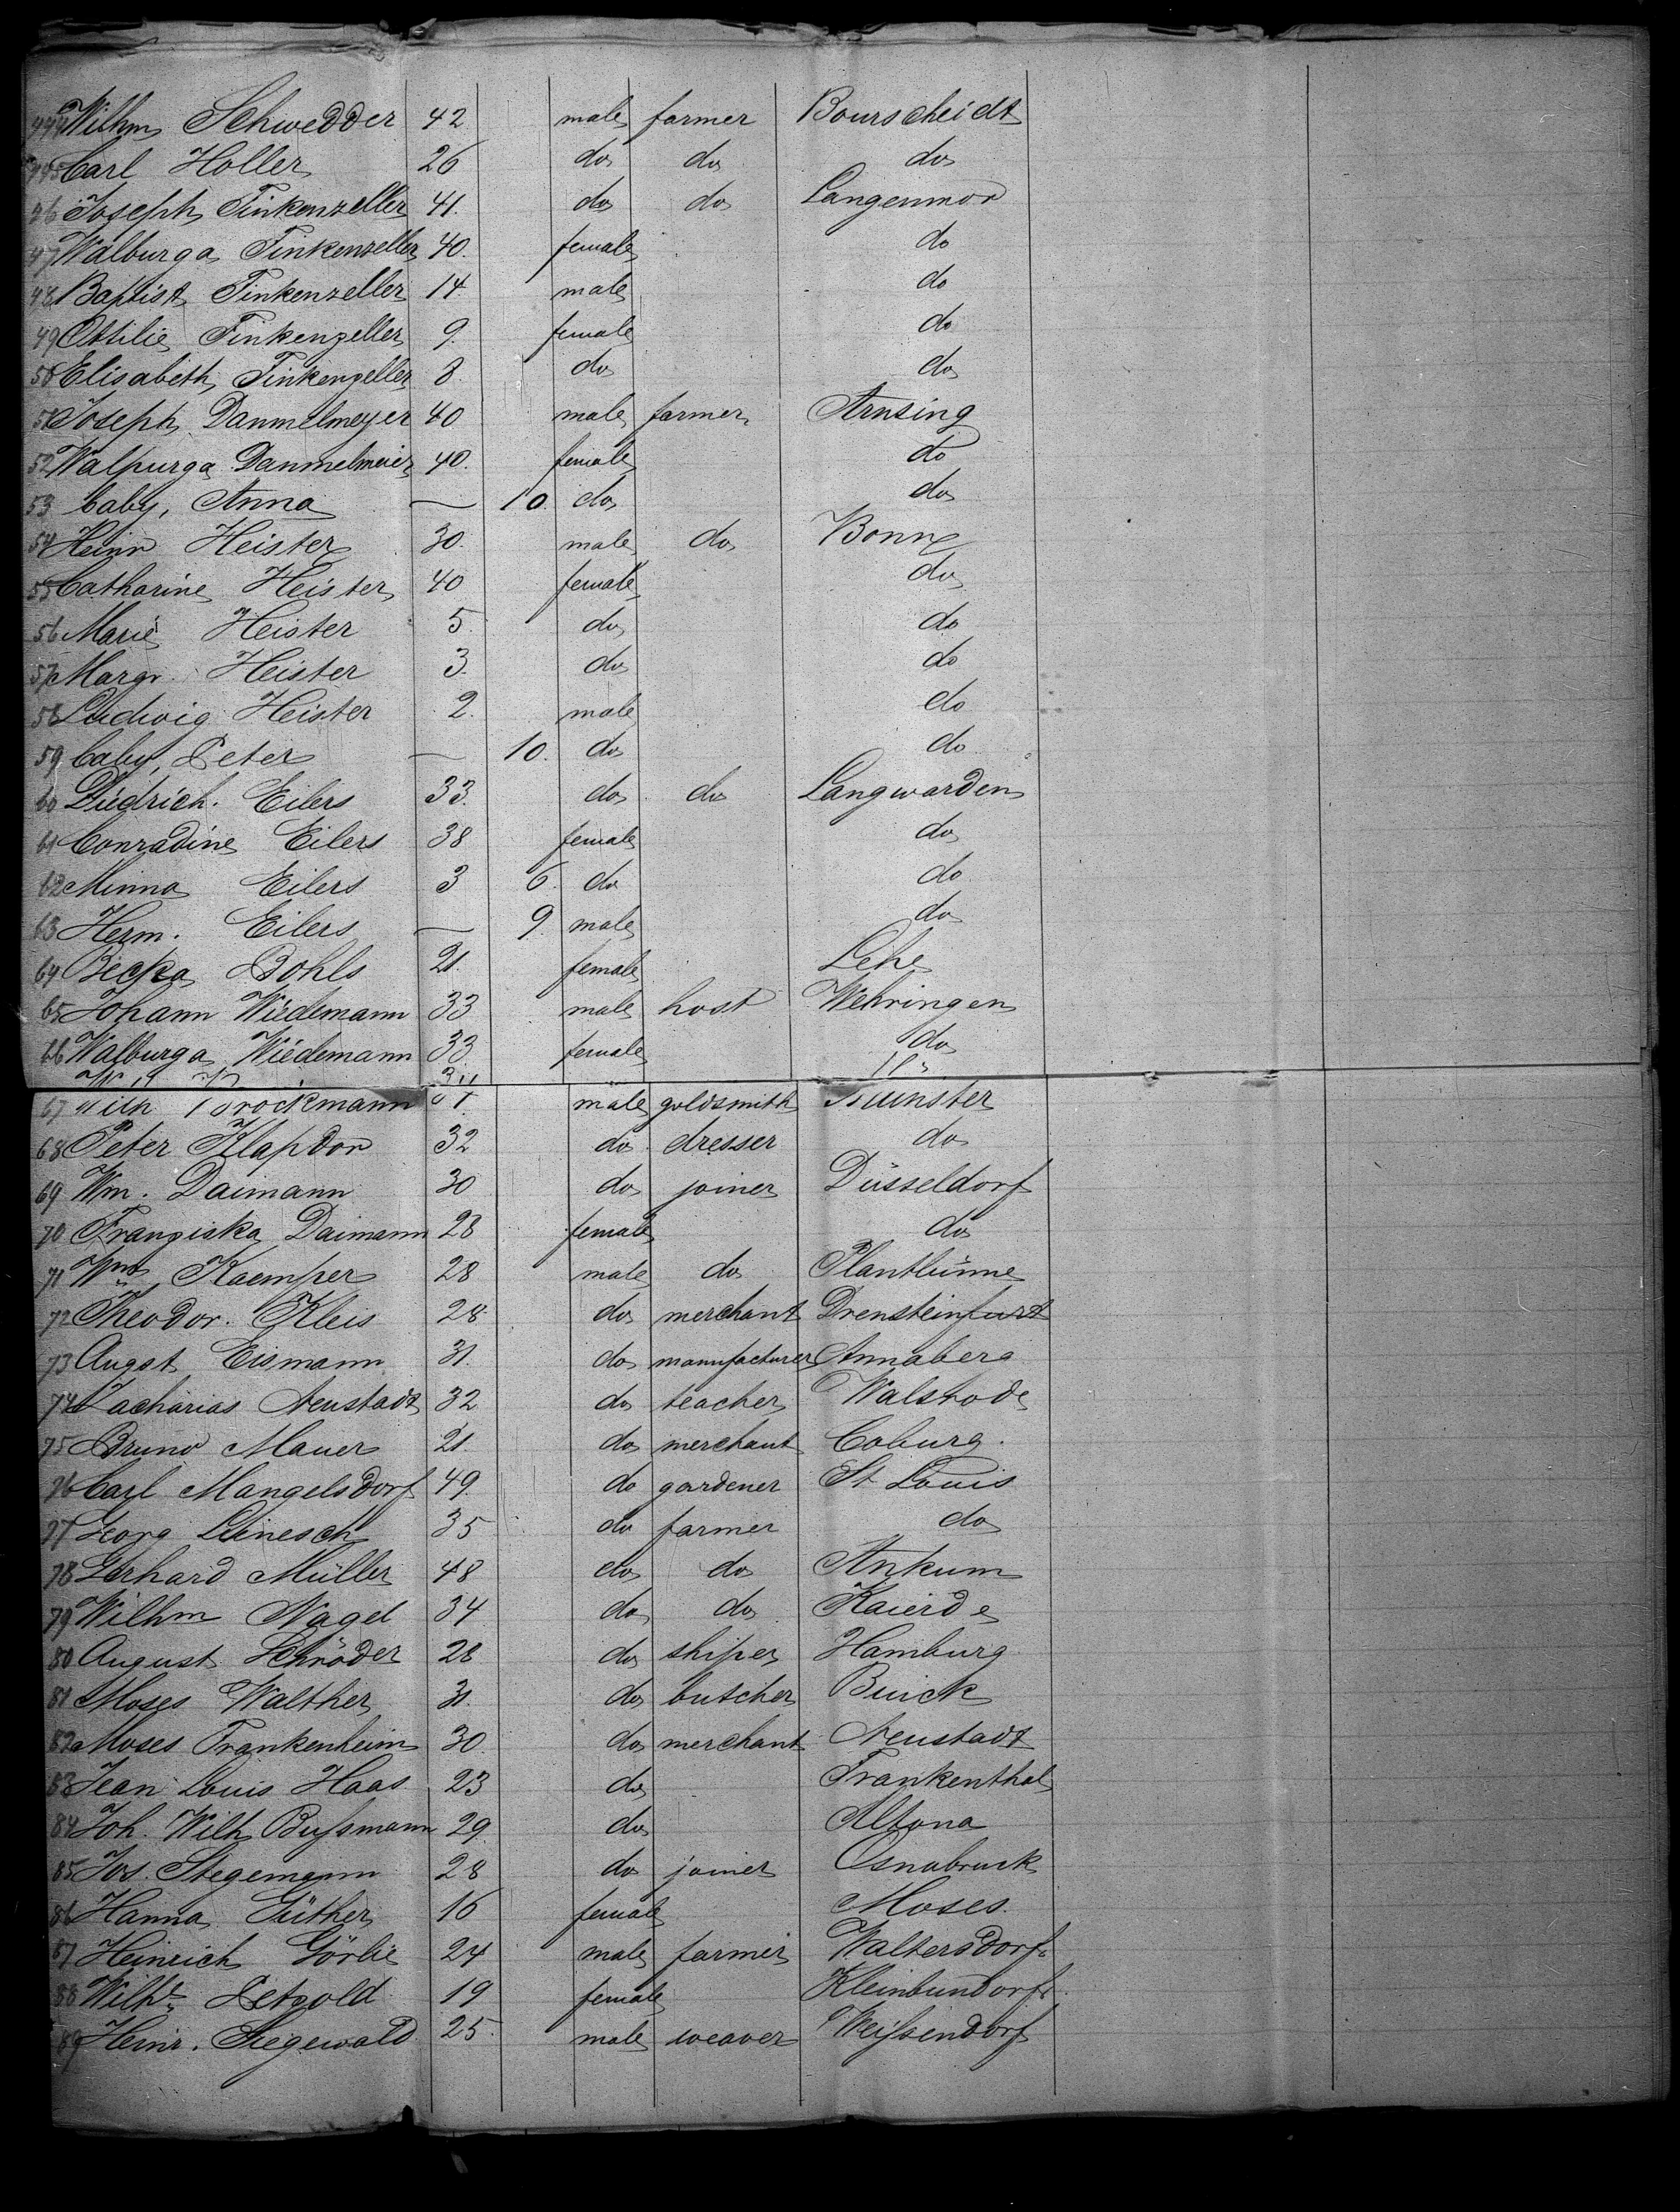 444 Wilhm Schwedder 42 male farmer Bourscheidt
445 Carl Holler 26 do do do
46 Joseph Finkenzeller 41. do do Langenmor
47 Walburga Finkenzeller 40. female do
48 Baptist Finkenzeller 14. male do
49 Ottilie Finkenzeller 9. female do
50 Elisabeth Finkenzeller 8. do do
51 Joseph Dammelmeyer 40 male farmer Arnsing
52 Walpurga Dammelmeier 40. female do
53 baby, Anna — 10. do do
54 Heinr Heister 30. male do Bonn
55 Catharine Heister 40 female do
56 Marie Heister 5. do do
57 Margr. Heister 3. do do
58 Ludwig Heister 2. male do
59 baby, Peter — 10. do do
60 Diedrich. Eilers 33. do do Langwarden
61 Conradine Eilers 38 female do
62 Minna Eilers 3 6. do do
63 Herm. Eilers — 9. male do
64 Becka Bohls 21. female Lehe
65 Johann Wiedemann 33 male host Wehringen
66 Walburga Wiedemann 33. female do
67 Wilh Brockmann 31. male goldsmith Munster
68 Peter Klapdor 32 do dresser do
69 Wm. Daimann 30 do joiner Düsseldorf
70 Franziska Daimann 28 female do
71 Wm Kaemper 28 male do Plantlünne
72 Theodor. Kleis 28 do merchant Drensteinfurt
73 Augst Eismann 31. do manufacturer Annaberg
74 Zacharias Neustadt 32 do teacher Walsrode
75 Bruno Mauer 21. do merchant Coburg.
76 Carl Mangelsdorf 49. do gardener St Louis
77 Georg Leinesch 35 do farmer do
78 Gerhard Müller 48 do do Ankum
79 Wilhm Nagel 34 do do Kaierde
80 August Schröder 28 do shiper Hamburg
81 Moses Walther 31. do butcher Buick
82 Moses Frankenheim 30. do merchant Neustadt
83 Jean Louis Haas 23 do Frankenthal
84 Joh. Wilh Bussmann 29. do Altona
85 Jos. Stegemann 28 do joiner Osnabruck
86 Hanna Güther 16 female Moses.
87 Heinrich Görlie 24 male farmer Waltersdorf.
88 Wilh. Petzold 19 female Kleinbundorf.
89 Heinr. Siegewald 25. male weaver Weissendorf